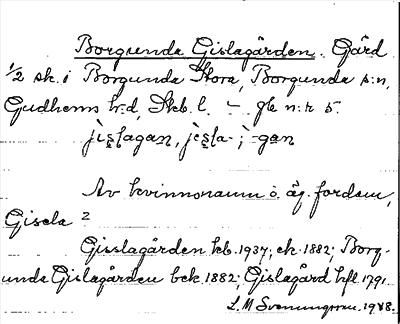 Borgunda Gislagården. Gård
1/2 sk. i Borgunda Stora, Borgunda s:n,
Gudhems h:d, Skb. l. – gb n:r 5.
jìslagan, jèsla-; -gan
Av kvinnonamn o. äg. fordom,
Gisela ?
Gisslagården kb. 1937; ek. 1882; Borg-
unda Gislagården bek. 1882; Gislagård hfl. 1791.
L. M. Svenungsson. 1938.